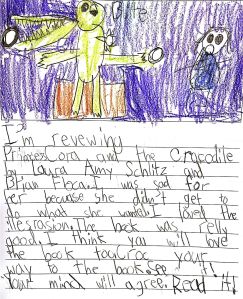 I'm revewing
Princess Cora and the Crocodile
by Laura Amy Schlitz and
Brian Floca. I was sad for
her because she didn't get to
do what she wanted. I loved the
illesrasion. The book was relly
good. I think you will love
the book too. Croc your
way to the book. See it!
Your mind will agree. Read it!